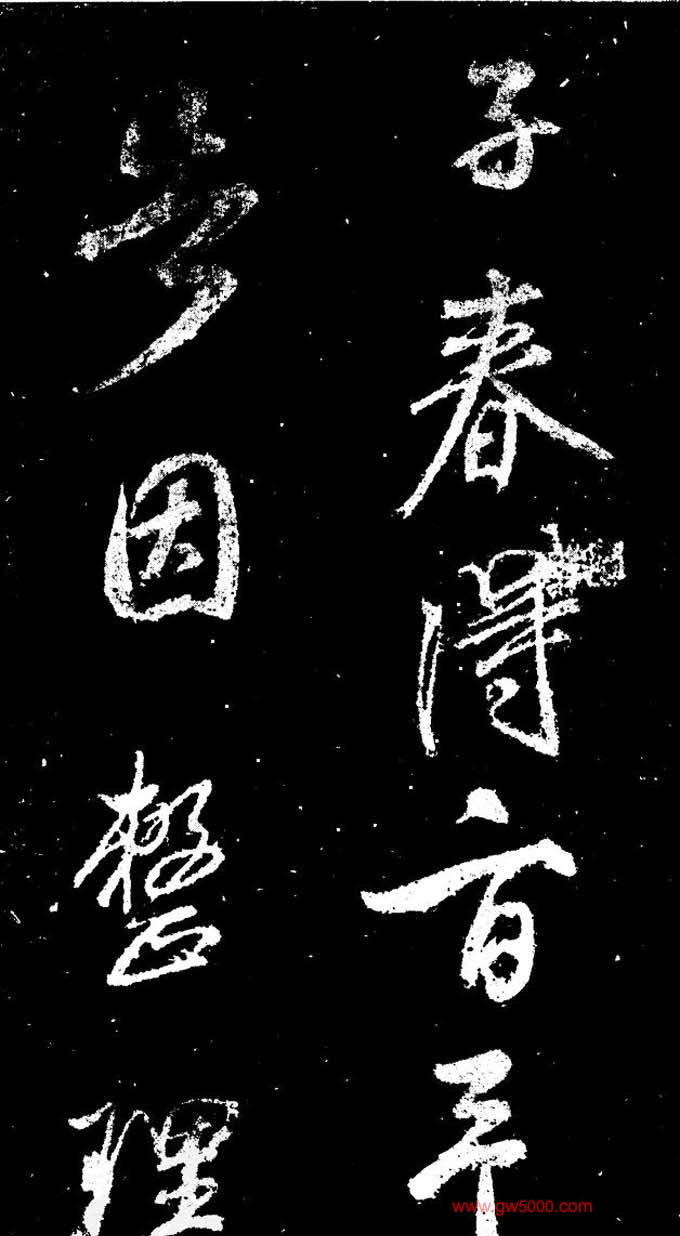 子春得百平
步因整理
www.gw5000.com